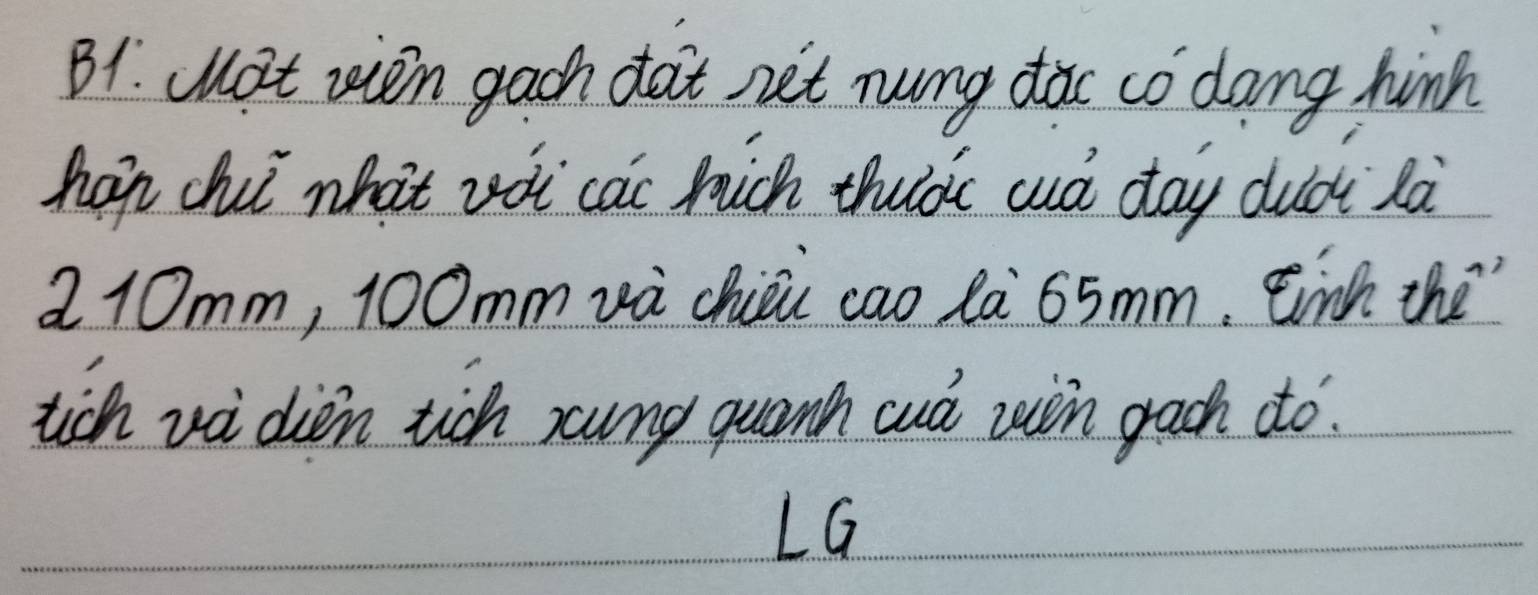 B1: Một viên gạch đất sét nung đặc có dạng hình
hộp chữ nhật với các kích thước của đáy dưới là
210mm, 100mm và chiều cao là 65mm. Tính thể
tích và diện tích xung quanh của viên gạch đó.
LG